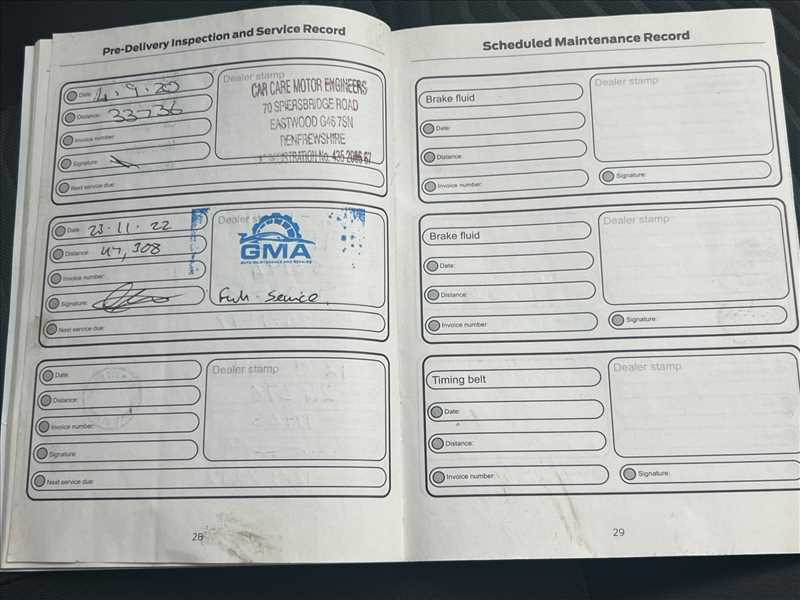 Pre-Delivery Inspection and Service Record
Date: 4.9.20
Distance: 33736
Invoice number:
Signature:
Next service due:
Dealer stamp
CAR CARE MOTOR ENGINEERS
70 SPIERSBRIDGE ROAD
EASTWOOD G46 7SN
RENFREWSHIRE
REGISTRATION No. 435 2086 67
Date: 23.11.22
Distance: 47,308
Invoice number:
Signature:
Next service due:
Dealer stamp
GMA
AUTO MAINTENANCE AND REPAIRS
Full Service.
Date:
Distance:
Invoice number:
Signature:
Next service due:
Dealer stamp
28
Scheduled Maintenance Record
Brake fluid
Date:
Distance:
Invoice number:
Dealer stamp
Signature:
Brake fluid
Date:
Distance:
Invoice number:
Dealer stamp
Signature:
Timing belt
Date:
Distance:
Invoice number:
Dealer stamp
Signature:
29